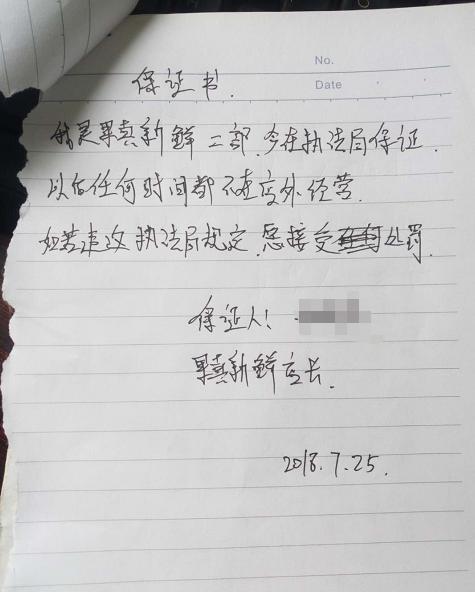 No.
Date
保证书.
我是果真新鲜二部.今在执法局保证.
以后任何时间都不在店外经营.
如若违反执法局规定.愿接受处罚.
保证人:
果真新鲜店长.
2018.7.25.